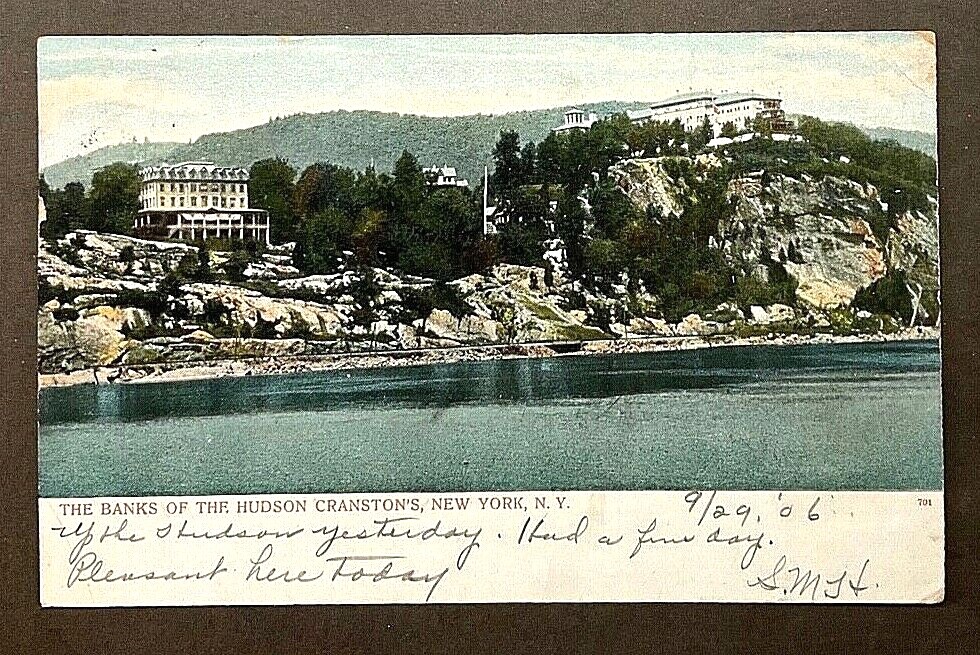 THE BANKS OF THE HUDSON CRANSTON'S, NEW YORK, N. Y.
701
9/29, '06
Up the Hudson yesterday. Had a fine day.
Pleasant here today
S.M.H.